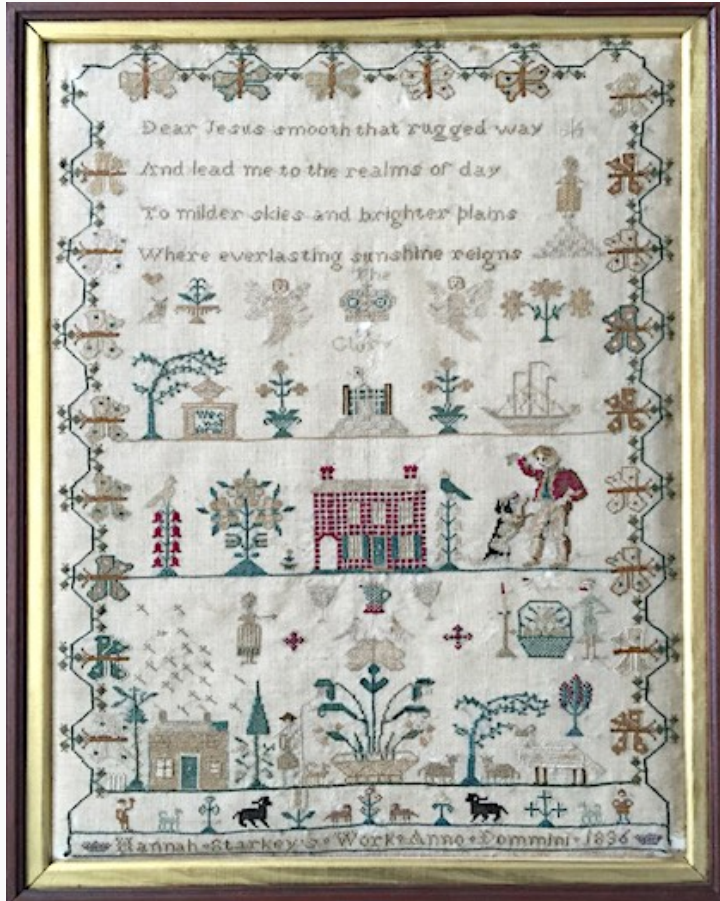 Dear Jesus smooth that rugged way
And lead me to the realms of day
To milder skies and brighter plains
Where everlasting sunshine reigns
The
Hannah Starkey's Work Anno Dommini 1836